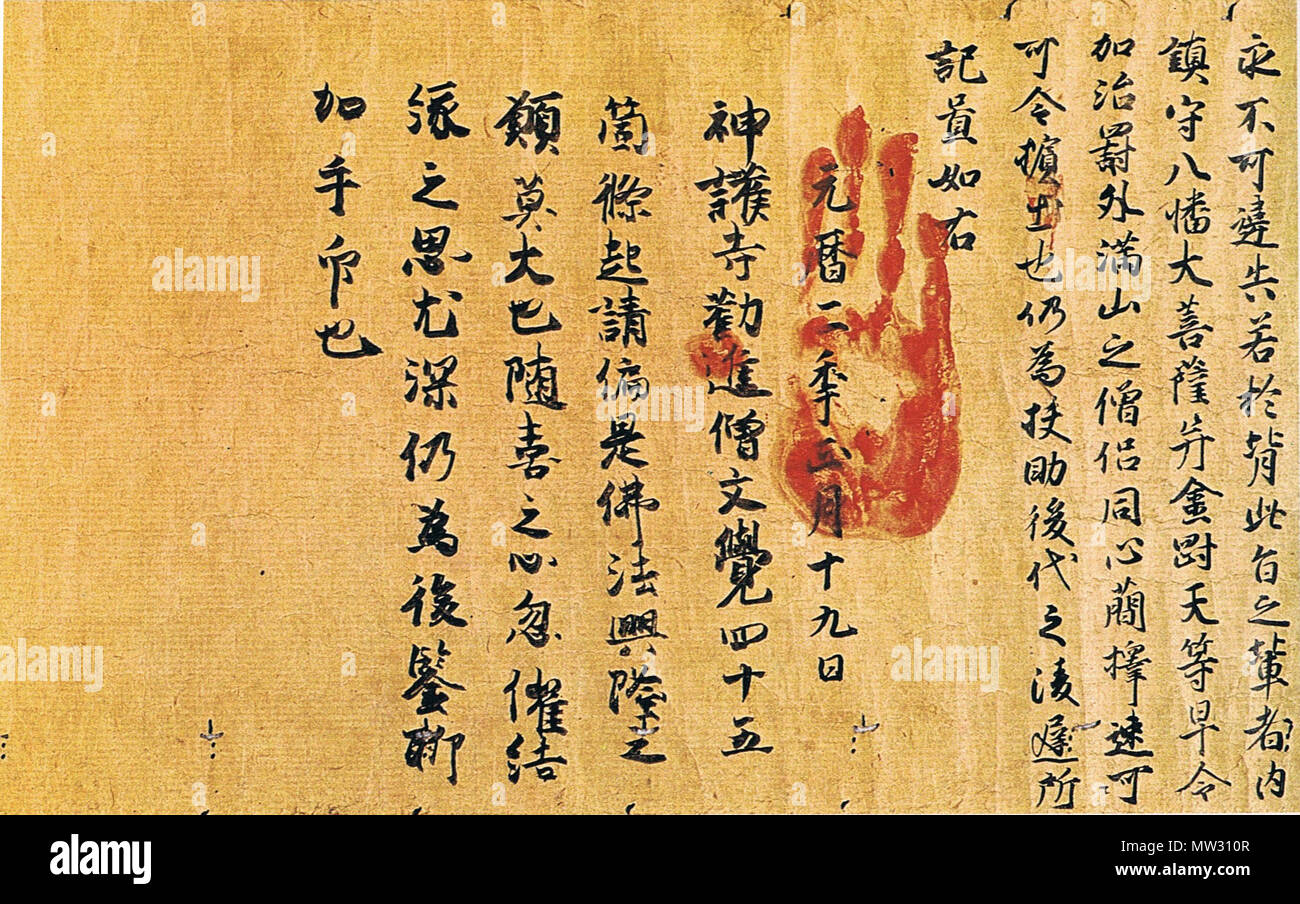 永不可違失若於背此旨之輩者内
鎮守八幡大菩薩并金剛天等早令
加治罸外満山之僧侶同心蕳擇速可
可令擯出也仍為扶助後代之陵遅所
記置如右
元暦二季正月十九日
神護寺勸進僧文覺四十五
箇條起請偏是佛法興隆之
願莫大也随喜之心忽催結
縁之思尤深仍為後鑒聊
加手印也
alamy
alamy
Image ID: MW310R
www.alamy.com